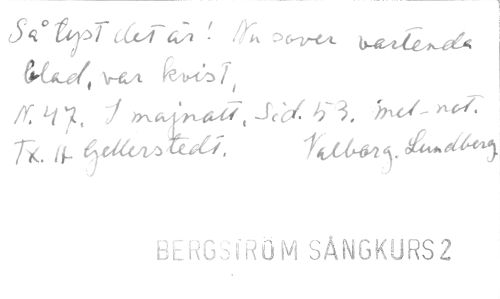 Så tyst det är! Nu sover vartenda
blad, var kvist,
N. 47. I majnatt, Sid. 53. mel-not.
Tx. A Gellerstedt. Valborg. Lundberg.
BERGSTRÖM SÅNGKURS 2